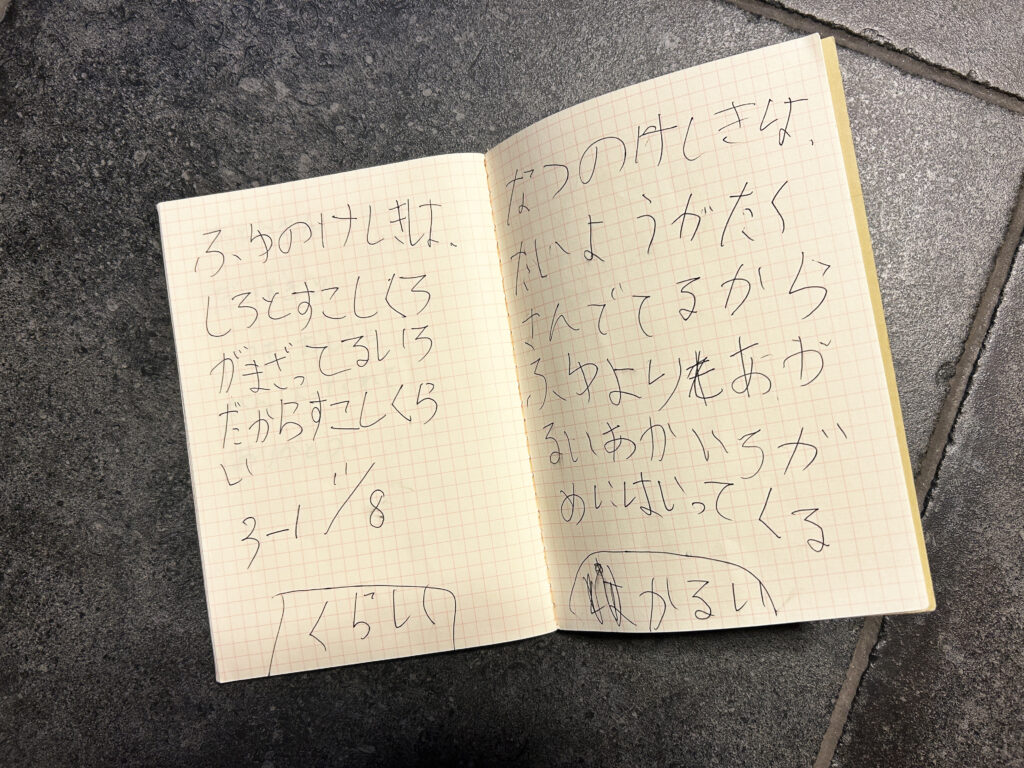 ふゆのけしきは、
しろとすこしくろ
がまざってるいろ
だからすこしくら
い
3-1 11/8
くらい
なつのけしきは、
たいようがたく
さんでてるから
ふゆよりもあか
るいあかいろが
めにはいってくる
かるい